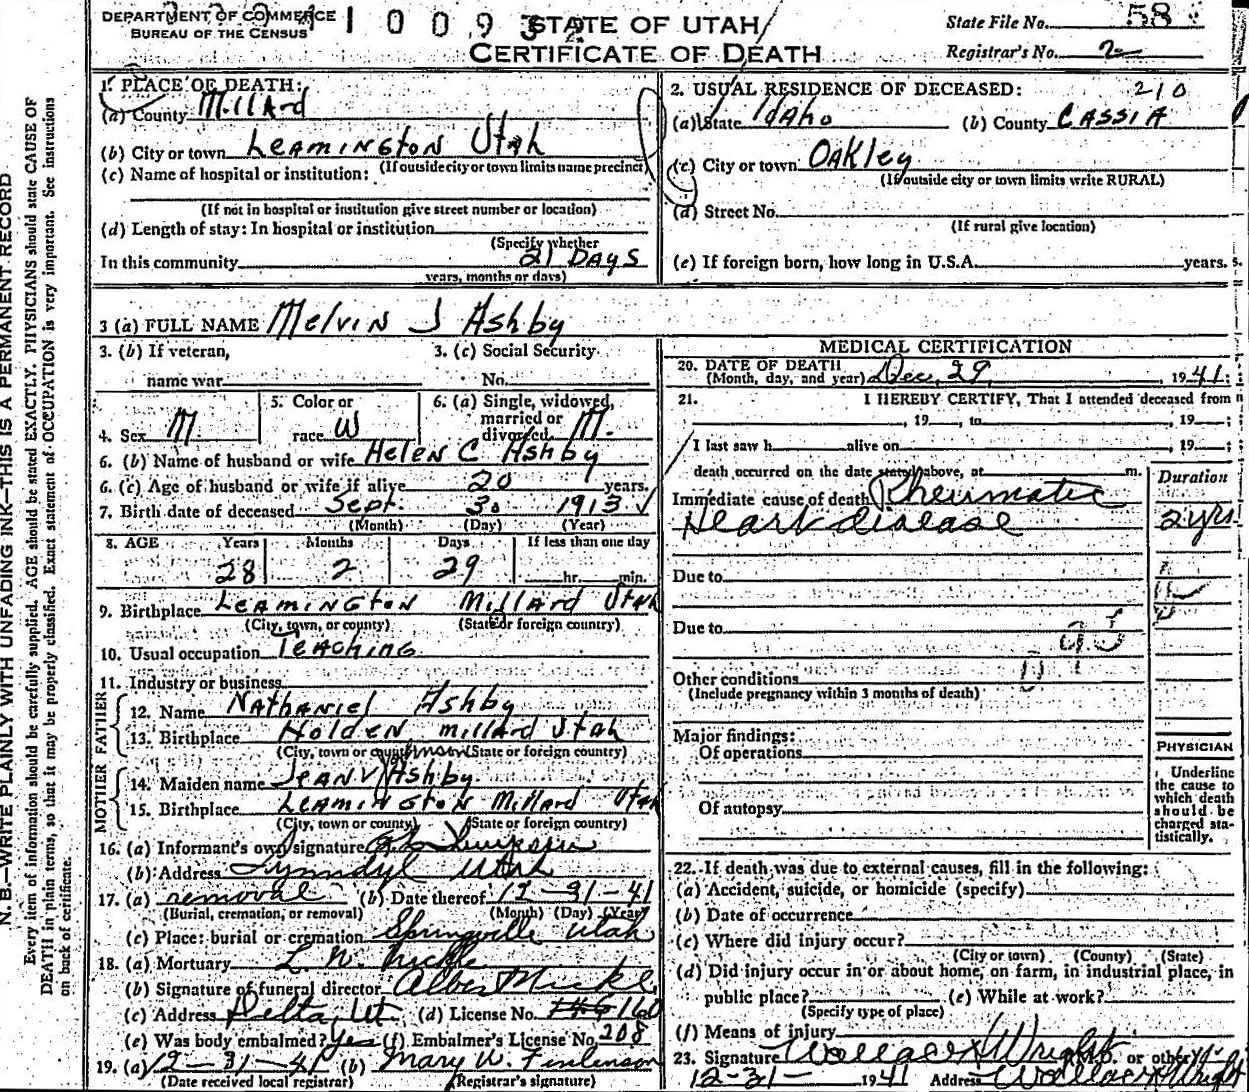 DEPARTMENT OF COMMERCE
BUREAU OF THE CENSUS
STATE OF UTAH
CERTIFICATE OF DEATH
State File No. 58
Registrar's No. 2
N. B.—WRITE PLAINLY WITH UNFADING INK—THIS IS A PERMANENT RECORD
Every item of information should be carefully supplied. AGE should be stated EXACTLY. PHYSICIANS should state CAUSE OF
DEATH in plain terms, so that it may be properly classified. Exact statement of OCCUPATION is very important. See instructions
on back of certificate.
1. PLACE OF DEATH:
(a) County Millard
(b) City or town Leamington Utah
(If outside city or town limits name precinct)
(c) Name of hospital or institution:
(If not in hospital or institution give street number or location)
(d) Length of stay: In hospital or institution
(Specify whether
In this community 21 DAYS
years, months or days)
2. USUAL RESIDENCE OF DECEASED: 210
(a) State Idaho (b) County CASSIA
(c) City or town Oakley
(If outside city or town limits write RURAL)
(d) Street No.
(If rural give location)
(e) If foreign born, how long in U.S.A. years.
3 (a) FULL NAME Melvin J Ashby
3. (b) If veteran,
name war
3. (c) Social Security
No.
4. Sex M.
5. Color or
race W
6. (a) Single, widowed,
married or
divorced M.
6. (b) Name of husband or wife Helen C Ashby
6. (c) Age of husband or wife if alive 20 years.
7. Birth date of deceased Sept. 30 1913
(Month) (Day) (Year)
8. AGE Years Months Days If less than one day
28 2 29 hr. min.
9. Birthplace Leamington Millard Utah
(City, town, or county) (State or foreign country)
10. Usual occupation Teaching
11. Industry or business
FATHER
12. Name Nathaniel Ashby
13. Birthplace Holden Millard Utah
(City, town or county) (State or foreign country)
MOTHER
14. Maiden name Ashby
15. Birthplace Leamington Millard Utah
(City, town or county) (State or foreign country)
16. (a) Informant's own signature
(b) Address Lynndyl Utah
17. (a) removal (b) Date thereof 12-31-41
(Burial, cremation, or removal) (Month) (Day) (Year)
(c) Place: burial or cremation Springville Utah
18. (a) Mortuary
(b) Signature of funeral director
(c) Address Delta, Ut (d) License No. 160
(e) Was body embalmed? Yes (f) Embalmer's License No. 208
19. (a) 12-31-41 (b) Mary W. Finlinson
(Date received local registrar) (Registrar's signature)
MEDICAL CERTIFICATION
20. DATE OF DEATH
(Month, day, and year) Dec. 29, 1941
21. I HEREBY CERTIFY, That I attended deceased from
, 19 , to , 19 ;
I last saw h alive on , 19 ;
death occurred on the date stated above, at m.
Duration
Immediate cause of death Rheumatic
Heart disease 2 yrs
Due to
Due to
Other conditions
(Include pregnancy within 3 months of death)
Major findings:
Of operations
Of autopsy
PHYSICIAN
Underline
the cause to
which death
should be
charged sta-
tistically.
22. If death was due to external causes, fill in the following:
(a) Accident, suicide, or homicide (specify)
(b) Date of occurrence
(c) Where did injury occur?
(City or town) (County) (State)
(d) Did injury occur in or about home, on farm, in industrial place, in
public place? (e) While at work?
(Specify type of place)
(f) Means of injury
23. Signature Wright M.D. or other
12-31- 1941 Address